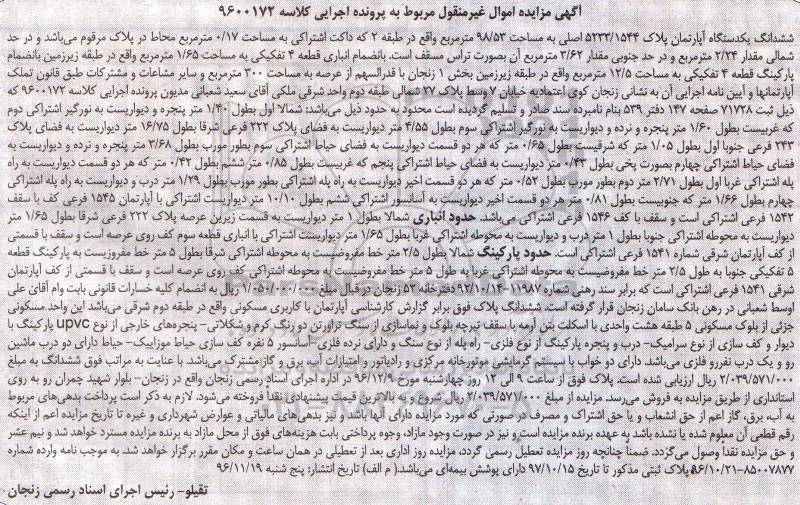 آگهی مزایده اموال غیرمنقول مربوط به پرونده اجرایی کلاسه ۹۶۰۰۱۷۲
ششدانگ یکدستگاه آپارتمان پلاک ۵۲۳۳/۱۵۴۴ اصلی به مساحت ۹۸/۵۳ مترمربع واقع در طبقه ۲ که داکت اشتراکی به مساحت ۰/۱۷ مترمربع محاط در پلاک مرقوم می‌باشد و در حد
شمالی مقدار ۲/۲۴ مترمربع و در حد جنوبی مقدار ۳/۶۲ مترمربع آن بصورت تراس مسقف است. بانضمام انباری قطعه ۴ تفکیکی به مساحت ۱/۶۵ مترمربع واقع در طبقه زیرزمین بانضمام
پارکینگ قطعه ۴ تفکیکی به مساحت ۱۲/۵ مترمربع واقع در طبقه زیرزمین بخش ۱ زنجان با قدرالسهم از عرصه به مساحت ۳۰۰ مترمربع و سایر مشاعات و مشترکات طبق قانون تملک
آپارتمانها و آیین نامه اجرایی آن به نشانی زنجان کوی اعتمادیه خیابان ۷ وسط پلاک ۲۷ شمالی طبقه دوم واحد شرقی ملکی آقای سعید شعبانی مدیون پرونده اجرایی کلاسه ۹۶۰۰۱۷۲ که
ذیل ثبت ۷۱۷۲۸ صفحه ۱۴۷ دفتر ۵۳۹ بنام نامبرده سند صادر و تسلیم گردیده است محدود به حدود ذیل می‌باشد: شمالا اول بطول ۱/۴۰ متر پنجره و دیواریست به نورگیر اشتراکی دوم
که غربیست بطول ۱/۶۰ متر پنجره و نرده و دیواریست به نورگیر اشتراکی سوم بطول ۴/۵۵ متر دیواریست به فضای پلاک ۲۲۲ فرعی شرقا بطول ۱۶/۷۵ متر دیواریست به فضای پلاک
۲۴۳ فرعی جنوبا اول بطول ۱/۰۵ متر که شرقیست بطول ۰/۶۵ متر که هر دو قسمت دیواریست به فضای حیاط اشتراکی سوم بطور مورب بطول ۳/۶۸ متر پنجره و نرده و دیواریست به
فضای حیاط اشتراکی چهارم بصورت پخی بطول ۰/۴۳ متر دیواریست به فضای حیاط اشتراکی پنجم که غربیست بطول ۰/۸۵ متر ششم بطول ۰/۴۲ متر که هر دو قسمت دیواریست به راه
پله اشتراکی غربا اول بطول ۲/۷۱ متر دوم بطور مورب بطول ۰/۵۲ متر که هر دو قسمت اخیر دیواریست به راه پله اشتراکی بطور مورب بطول ۱/۲۹ متر درب و دیواریست به راه پله اشتراکی
چهارم بطول ۱/۶۶ متر که جنوبیست بطول ۰/۸۱ متر هر دو قسمت اخیر دیواریست به آسانسور اشتراکی ششم بطول ۱۰/۱۰ متر دیواریست اشتراکی با آپارتمان ۱۵۴۵ فرعی کف با سقف
۱۵۴۲ فرعی اشتراکی است و سقف با کف ۱۵۴۶ فرعی اشتراکی می‌باشد. حدود انباری شمالا بطول ۱ متر دیواریست به قسمت زیرین عرصه پلاک ۲۲۲ فرعی شرقا بطول ۱/۶۵ متر
دیواریست به محوطه اشتراکی جنوبا بطول ۱ متر درب و دیواریست به محوطه اشتراکی غربا بطول ۱/۶۵ متر دیواریست اشتراکی با انباری قطعه سوم کف روی عرصه است و سقف با قسمتی
از کف آپارتمان شرقی شماره ۱۵۴۱ فرعی اشتراکی است. حدود پارکینگ شمالا بطول ۲/۵ متر خط مفروضیست به محوطه اشتراکی شرقا بطول ۵ متر خط مفروزیست به پارکینگ قطعه
۵ تفکیکی جنوبا به طول ۲/۵ متر خط مفروضیست به محوطه اشتراکی غربا به طول ۵ متر خط مفروضیست به محوطه اشتراکی کف روی عرصه است و سقف با قسمتی از کف آپارتمان
شرقی ۱۵۴۱ فرعی اشتراکی است که برابر سند رهنی شماره ۱۱۹۸۷-۹۲/۱۰/۱۴ دفترخانه ۵۲ زنجان در قبال مبلغ ۱/۰۵۰/۰۰۰/۰۰۰ ریال به انضمام کلیه خسارات قانونی بابت وام آقای علی
اوسط شعبانی در رهن بانک سامان زنجان قرار گرفته است. ششدانگ پلاک فوق برابر گزارش کارشناسی آپارتمان با کاربری مسکونی واقع در طبقه دوم شرقی می‌باشد این واحد مسکونی
جزئی از بلوک مسکونی ۵ طبقه هشت واحدی با اسکلت بتن آرمه با سقف تیرچه بلوک و نماسازی از سنگ تراورتن دو رنگ کرم و شکلاتی- پنجره‌های خارجی از نوع upvc پارکینگ با
دیوار و کف سازی از نوع سرامیک- درب و پنجره پارکینگ از نوع فلزی- راه پله از نوع سنگ و دارای نرده فلزی- آسانسور ۵ نفره کف سازی حیاط موزاییک- حیاط دارای دو درب ماشین
رو و یک درب نفررو فلزی می‌باشد. دارای دو خواب با سیستم گرمایشی موتورخانه مرکزی و رادیاتور و امتیازات آب، برق و گاز مشترک می‌باشد. با عنایت به مراتب فوق ششدانگ به مبلغ
۲/۰۳۹/۵۷۱/۰۰۰ ریال ارزیابی شده است. پلاک فوق از ساعت ۹ الی ۱۲ روز چهارشنبه مورخ ۹۶/۱۲/۹ در اداره اجرای اسناد رسمی زنجان واقع در زنجان- بلوار شهید چمران رو به روی
استانداری از طریق مزایده به فروش می‌رسد. مزایده از مبلغ ۲/۰۳۹/۵۷۱/۰۰۰ ریال شروع و به بالاترین قیمت پیشنهادی نقدا فروخته می‌شود. لازم به ذکر است پرداخت بدهی‌های مربوط
به آب، برق، گاز اعم از حق انشعاب و یا حق اشتراک و مصرف در صورتی که مورد مزایده دارای آنها باشد و نیز بدهی‌های مالیاتی و عوارض شهرداری و غیره تا تاریخ مزایده اعم از اینکه
رقم قطعی آن معلوم شده یا نشده باشد به عهده برنده مزایده است و نیز در صورت وجود مازاد، وجوه پرداختی بابت هزینه‌های فوق از محل مازاد به برنده مزایده مسترد خواهد شد و نیم عشر
و حق مزایده نقدا وصول می‌گردد. ضمنا چنانچه روز مزایده تعطیل رسمی گردد، مزایده روز اداری بعد از تعطیلی در همان ساعت و مکان مقرر برگزار خواهد شد. به موجب نامه وارده شماره
۸۵۰۰۷۸۷۷-۹۶/۱۰/۲۱ پلاک ثبتی مذکور تا تاریخ ۹۷/۱۰/۱۵ دارای پوشش بیمه‌ای می‌باشد.( م الف) تاریخ انتشار: پنج شنبه ۹۶/۱۱/۱۹
تقیلو- رئیس اجرای اسناد رسمی زنجان